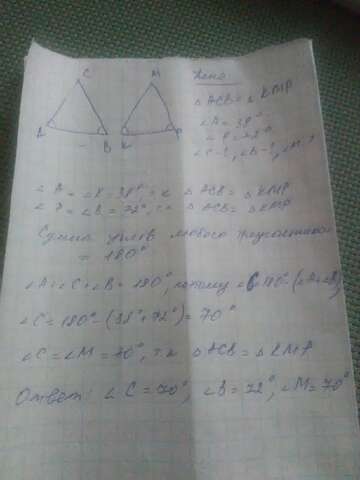 C
M
A
B
K
P
Дано
△ ACB = △ KMP
∠A = 38°
∠P = 72°
∠C-?, ∠B-?, ∠M-?
∠A = ∠K = 38°, т.к △ ACB = △ KMP
∠P = ∠B = 72°, т.к △ ACB = △ KMP
Сумма углов любого треугольника
= 180°
∠A + ∠C + ∠B = 180°, потому ∠C = 180° - (∠A + ∠B)
∠C = 180° - (38° + 72°) = 70°
∠C = ∠M = 70°, т.к △ ACB = △ KMP
Ответ: ∠C = 70°, ∠B = 72°, ∠M = 70°